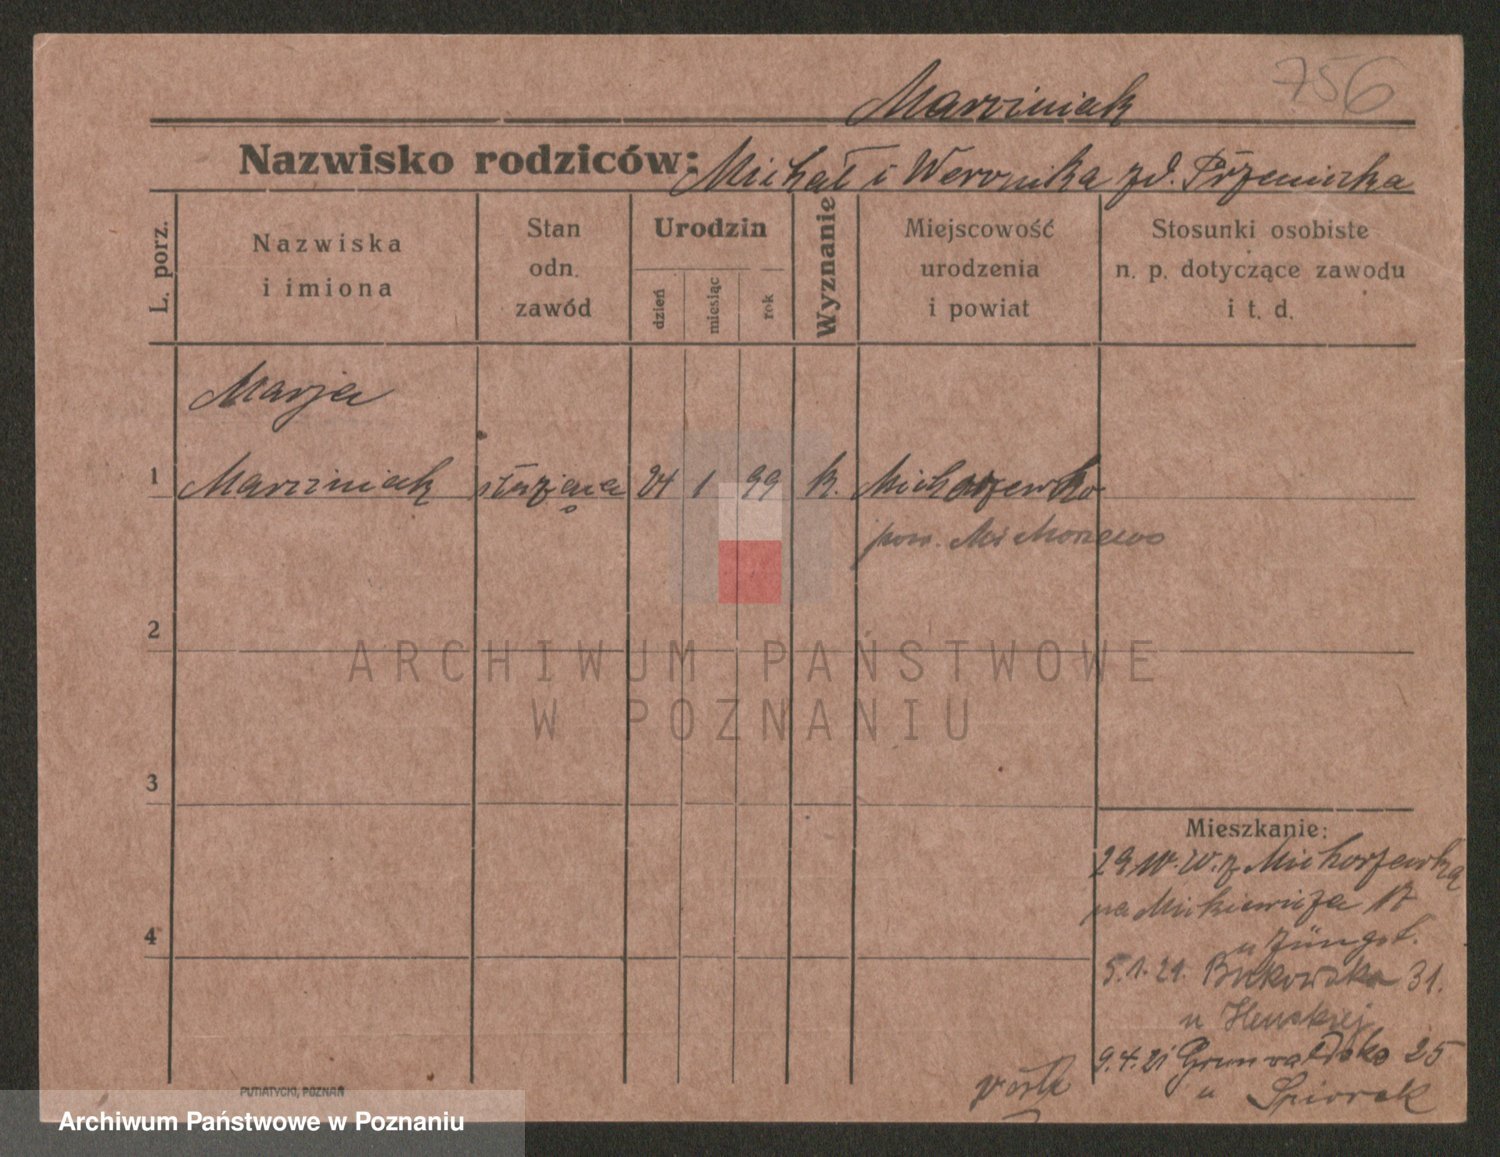 756
Marciniak
Nazwisko rodziców: Michał i Weronika zd. Pszeniczka
L. porz.
Nazwiska
i imiona
Stan
odn.
zawód
Urodzin
dzień
miesiąc
rok
Wyznanie
Miejscowość
urodzenia
i powiat
Stosunki osobiste
n. p. dotyczące zawodu
i t. d.
Marja
1 Marciniak służąca 24 1 99 k. Michorzewko
pow.
2
ARCHIWUM PAŃSTWOWE
W POZNANIU
3
Mieszkanie:
z Michorzewka
na Mickiewicza 17
4
u
5.1.21. Bukowska 31.
u
9.4.21 Grunwaldzka 25
u
PUTIATYCKI, POZNAŃ
Archiwum Państwowe w Poznaniu